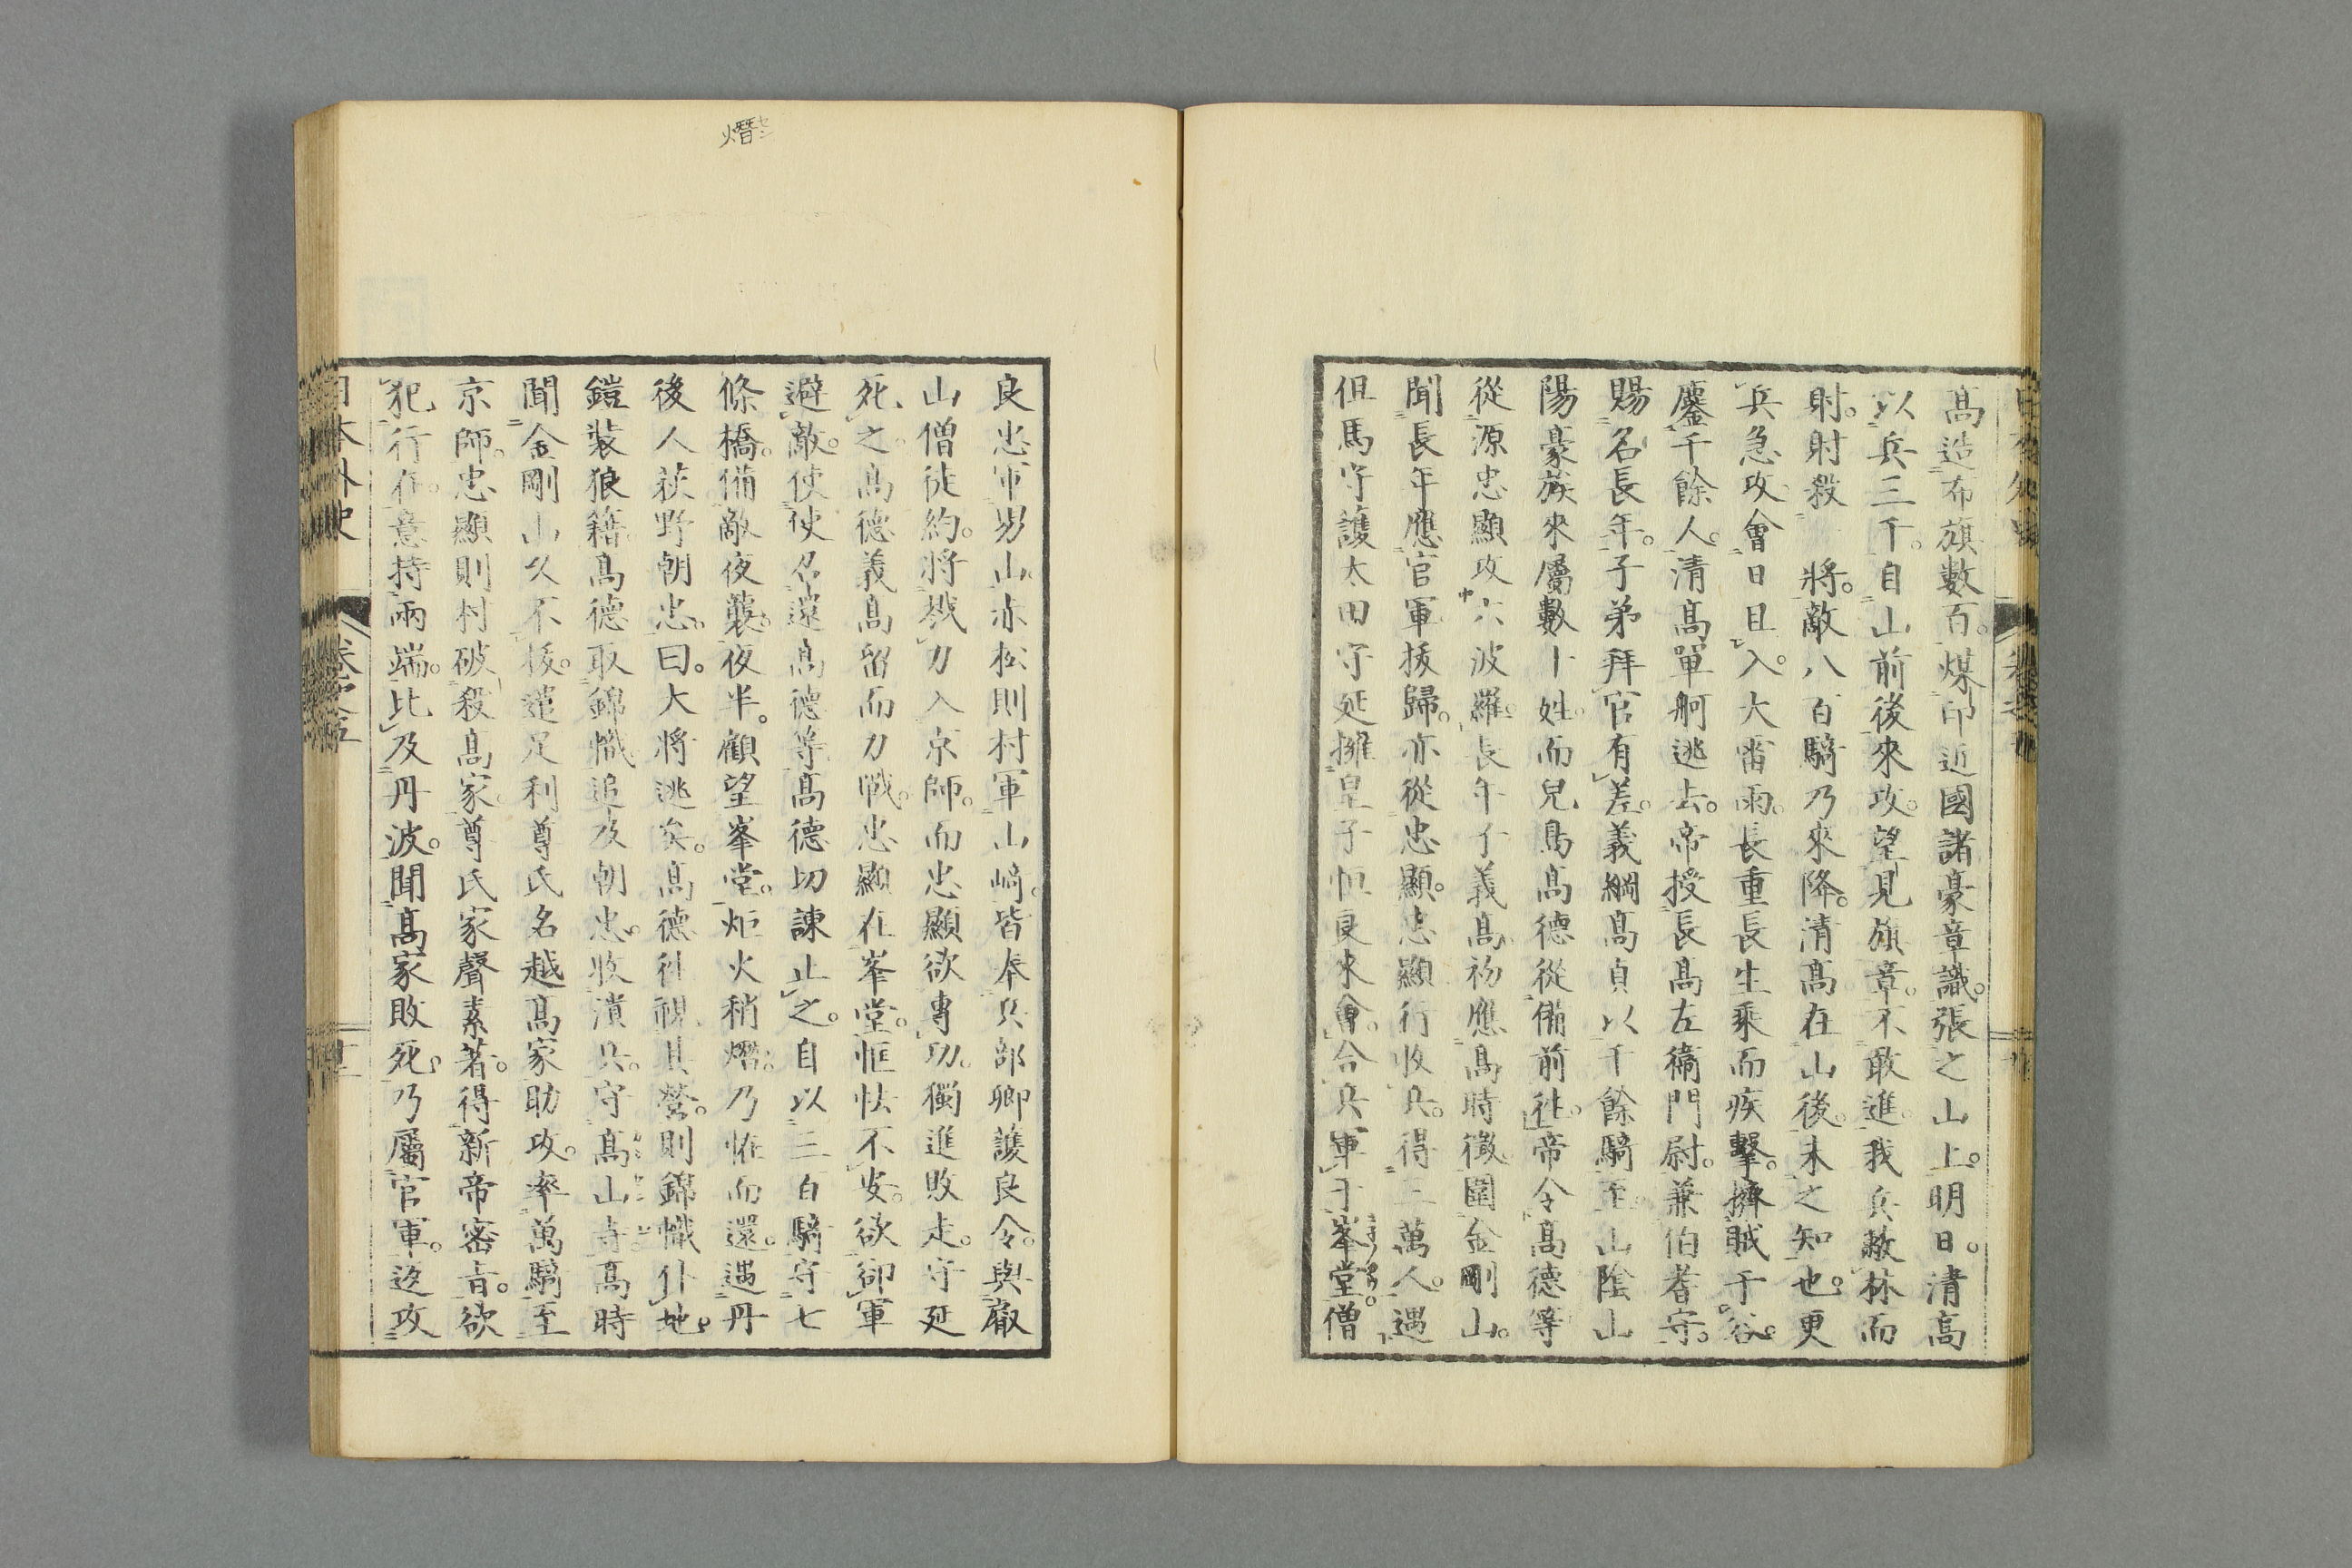 高造布旗數百。煤印近國諸豪章識。張之山上。明日。清高
以兵三千。自山前後來攻。望見旗章。不敢進。我兵蔽林而
射。射殺 將。敵八百騎乃來降。清高在山後。未之知也。更
兵急攻。會日且入。大雷雨。長重長生乘而疾擊。擠賊于谷。
鏖千餘人。清高單舸逃去。帝授長高左衞門尉。兼伯耆守。
賜名長年。子弟拜官有差。義綱高貞以千餘騎至。山陰山
陽豪族來屬數十姓。而兒島高德從備前徃。帝令高德等
從源忠顯攻六波羅。長年子義高初應高時徵圍金剛山。
聞長年應官軍拔歸。亦從忠顯。忠顯行收兵。得三萬人。遇
但馬守護太田守延擁皇子恒良來會。合兵軍于峯堂。僧
良忠軍男山。赤松則村軍山崎。皆奉兵部卿護良令。與叡
山僧徒約。將戮力入京師。而忠顯欲專功。獨進敗走。守延
死之。高德義高留而力戰。忠顯在峯堂。恇怯不安。欲卻軍
避敵。使使召還高德等。高德切諫止之。自以三百騎守七
條橋。備敵夜襲。夜半。顧望峯堂。炬火稍熸。乃恠而還。遇丹
後人荻野朝忠。曰。大將逃矣。高德徃視其營。則錦幟仆地。
鎧裝狼籍。高德取錦幟追及朝忠。收潰兵。守高山寺。高時
聞金剛山久不拔。遣足利尊氏名越高家助攻。率萬騎至
京師。忠顯則村破殺高家。尊氏家聲素著。得新帝密旨。欲
犯行在。意持兩端。比及丹波。聞高家敗死。乃屬官軍。迯攻
日本外史 卷之五
熸セン